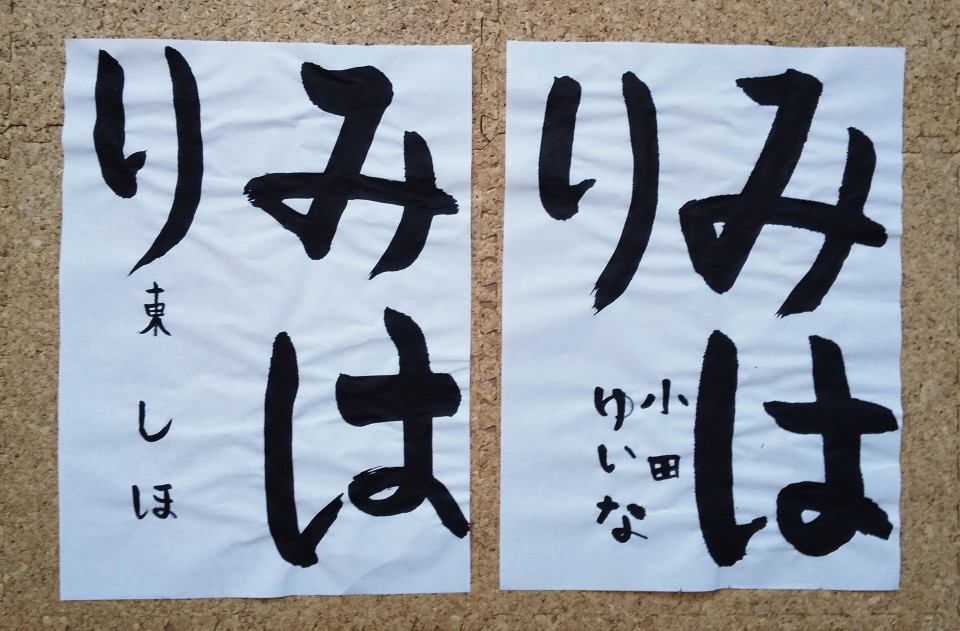 みは
り
東 しほ
みは
り
小田
ゆいな